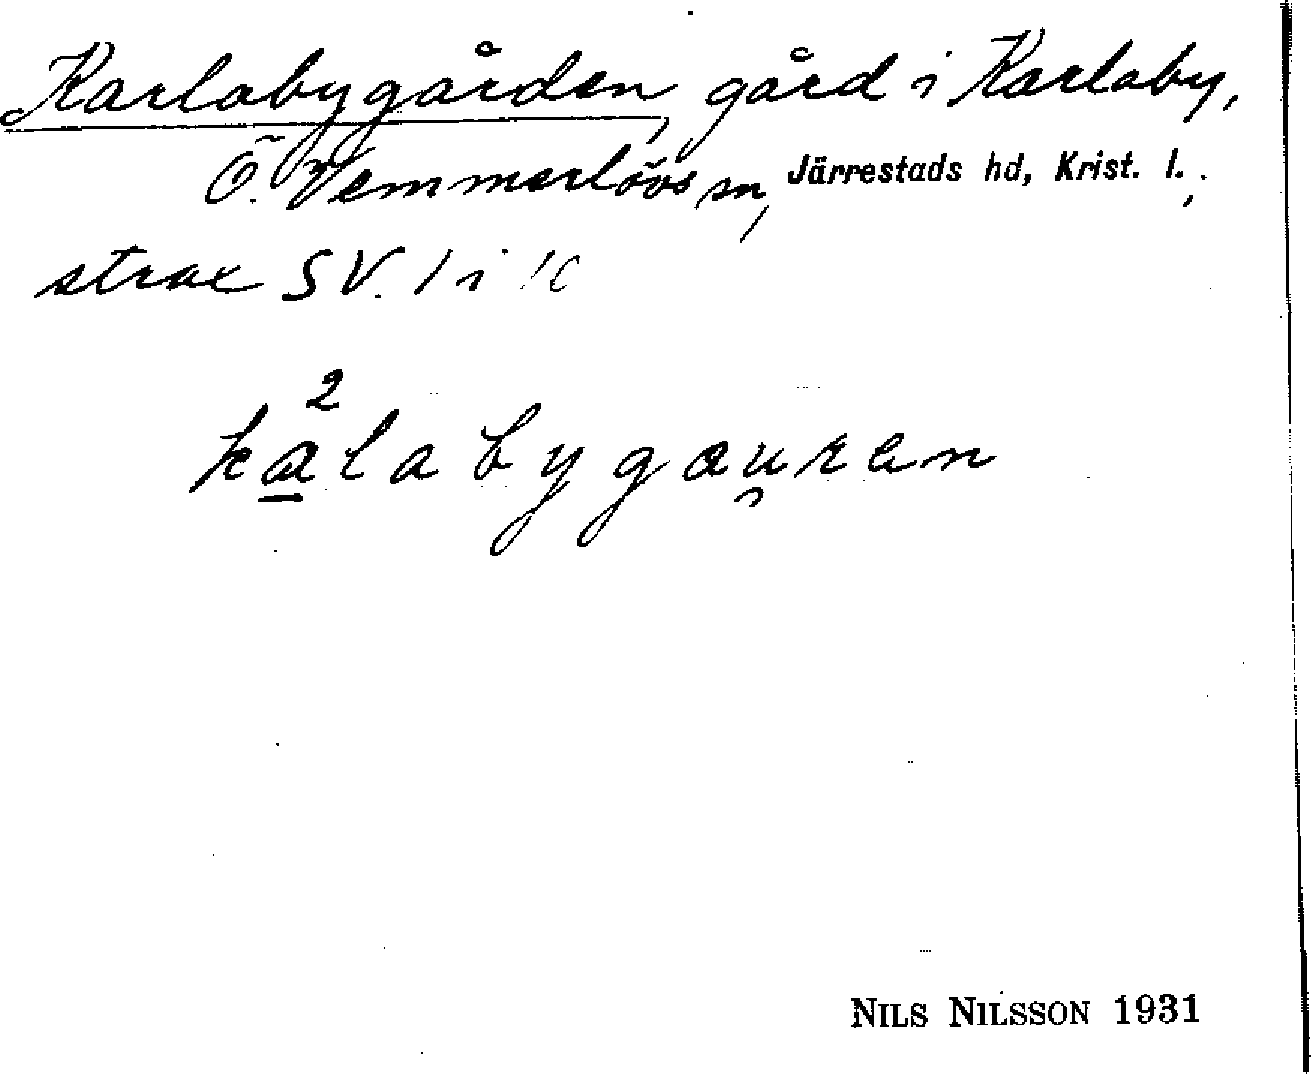 Karlabygården, gård i Karlaby,
Ö. Vemmerlövs sn, Järrestads hd, Krist. l.,
strax SV. 1 i 10
2
kalabygauren
NILS NILSSON 1931